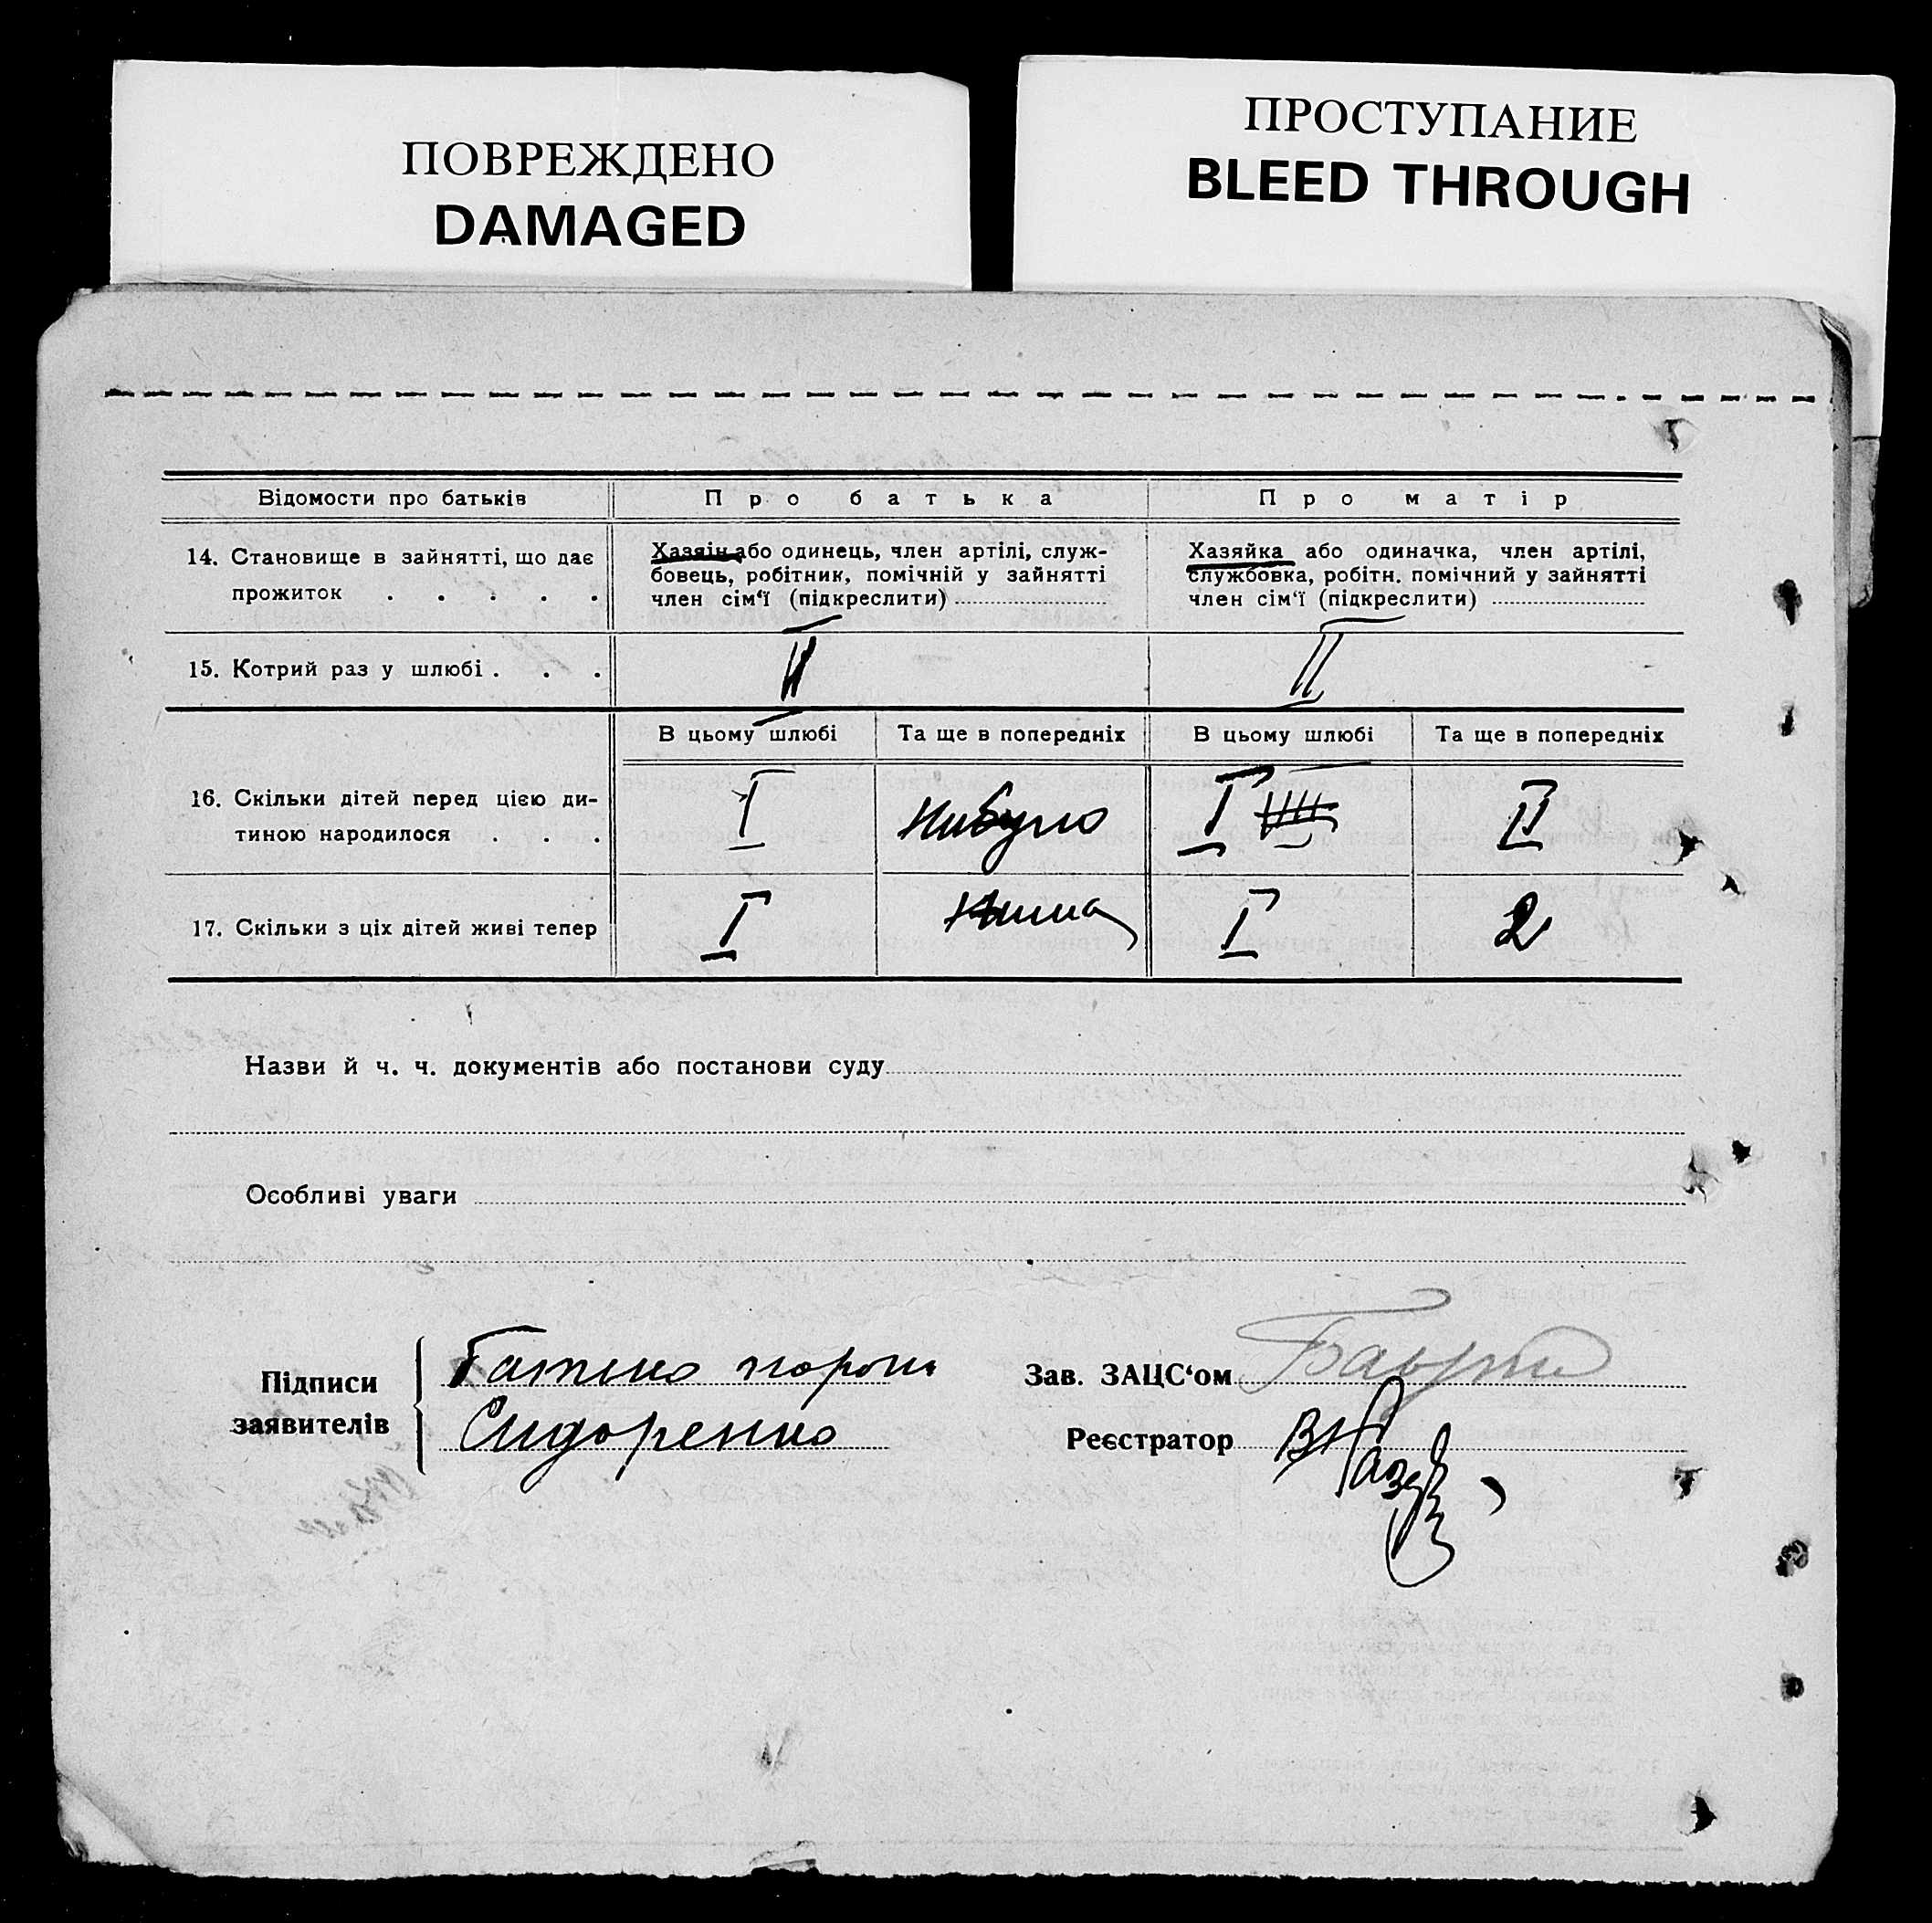 ПОВРЕЖДЕНО
DAMAGED
ПРОСТУПАНИЕ
BLEED THROUGH
Відомости про батьків
Про батька
Про матір
14. Становище в зайнятті, що дає
прожиток . . . . .
Хазяїн або одинець, член артілі, служ-
бовець, робітник, помічній у зайнятті
член сім'ї (підкреслити)
Хазяйка або одиначка, член артілі,
службовка, робітн. помічний у зайнятті
член сім'ї (підкреслити)
15. Котрий раз у шлюбі . . .
II
II
В цьому шлюбі
Та ще в попередніх
В цьому шлюбі
Та ще в попередніх
16. Скільки дітей перед цією ди-
тиною народилося . . .
I
Нибуло
I
II
17. Скільки з ціх дітей живі тепер
I
Нима
I
2
Назви й ч. ч. документів або постанови суду
Особливі уваги
Підписи
заявителів
Сидоренко
Зав. ЗАЦС'ом
Реєстратор